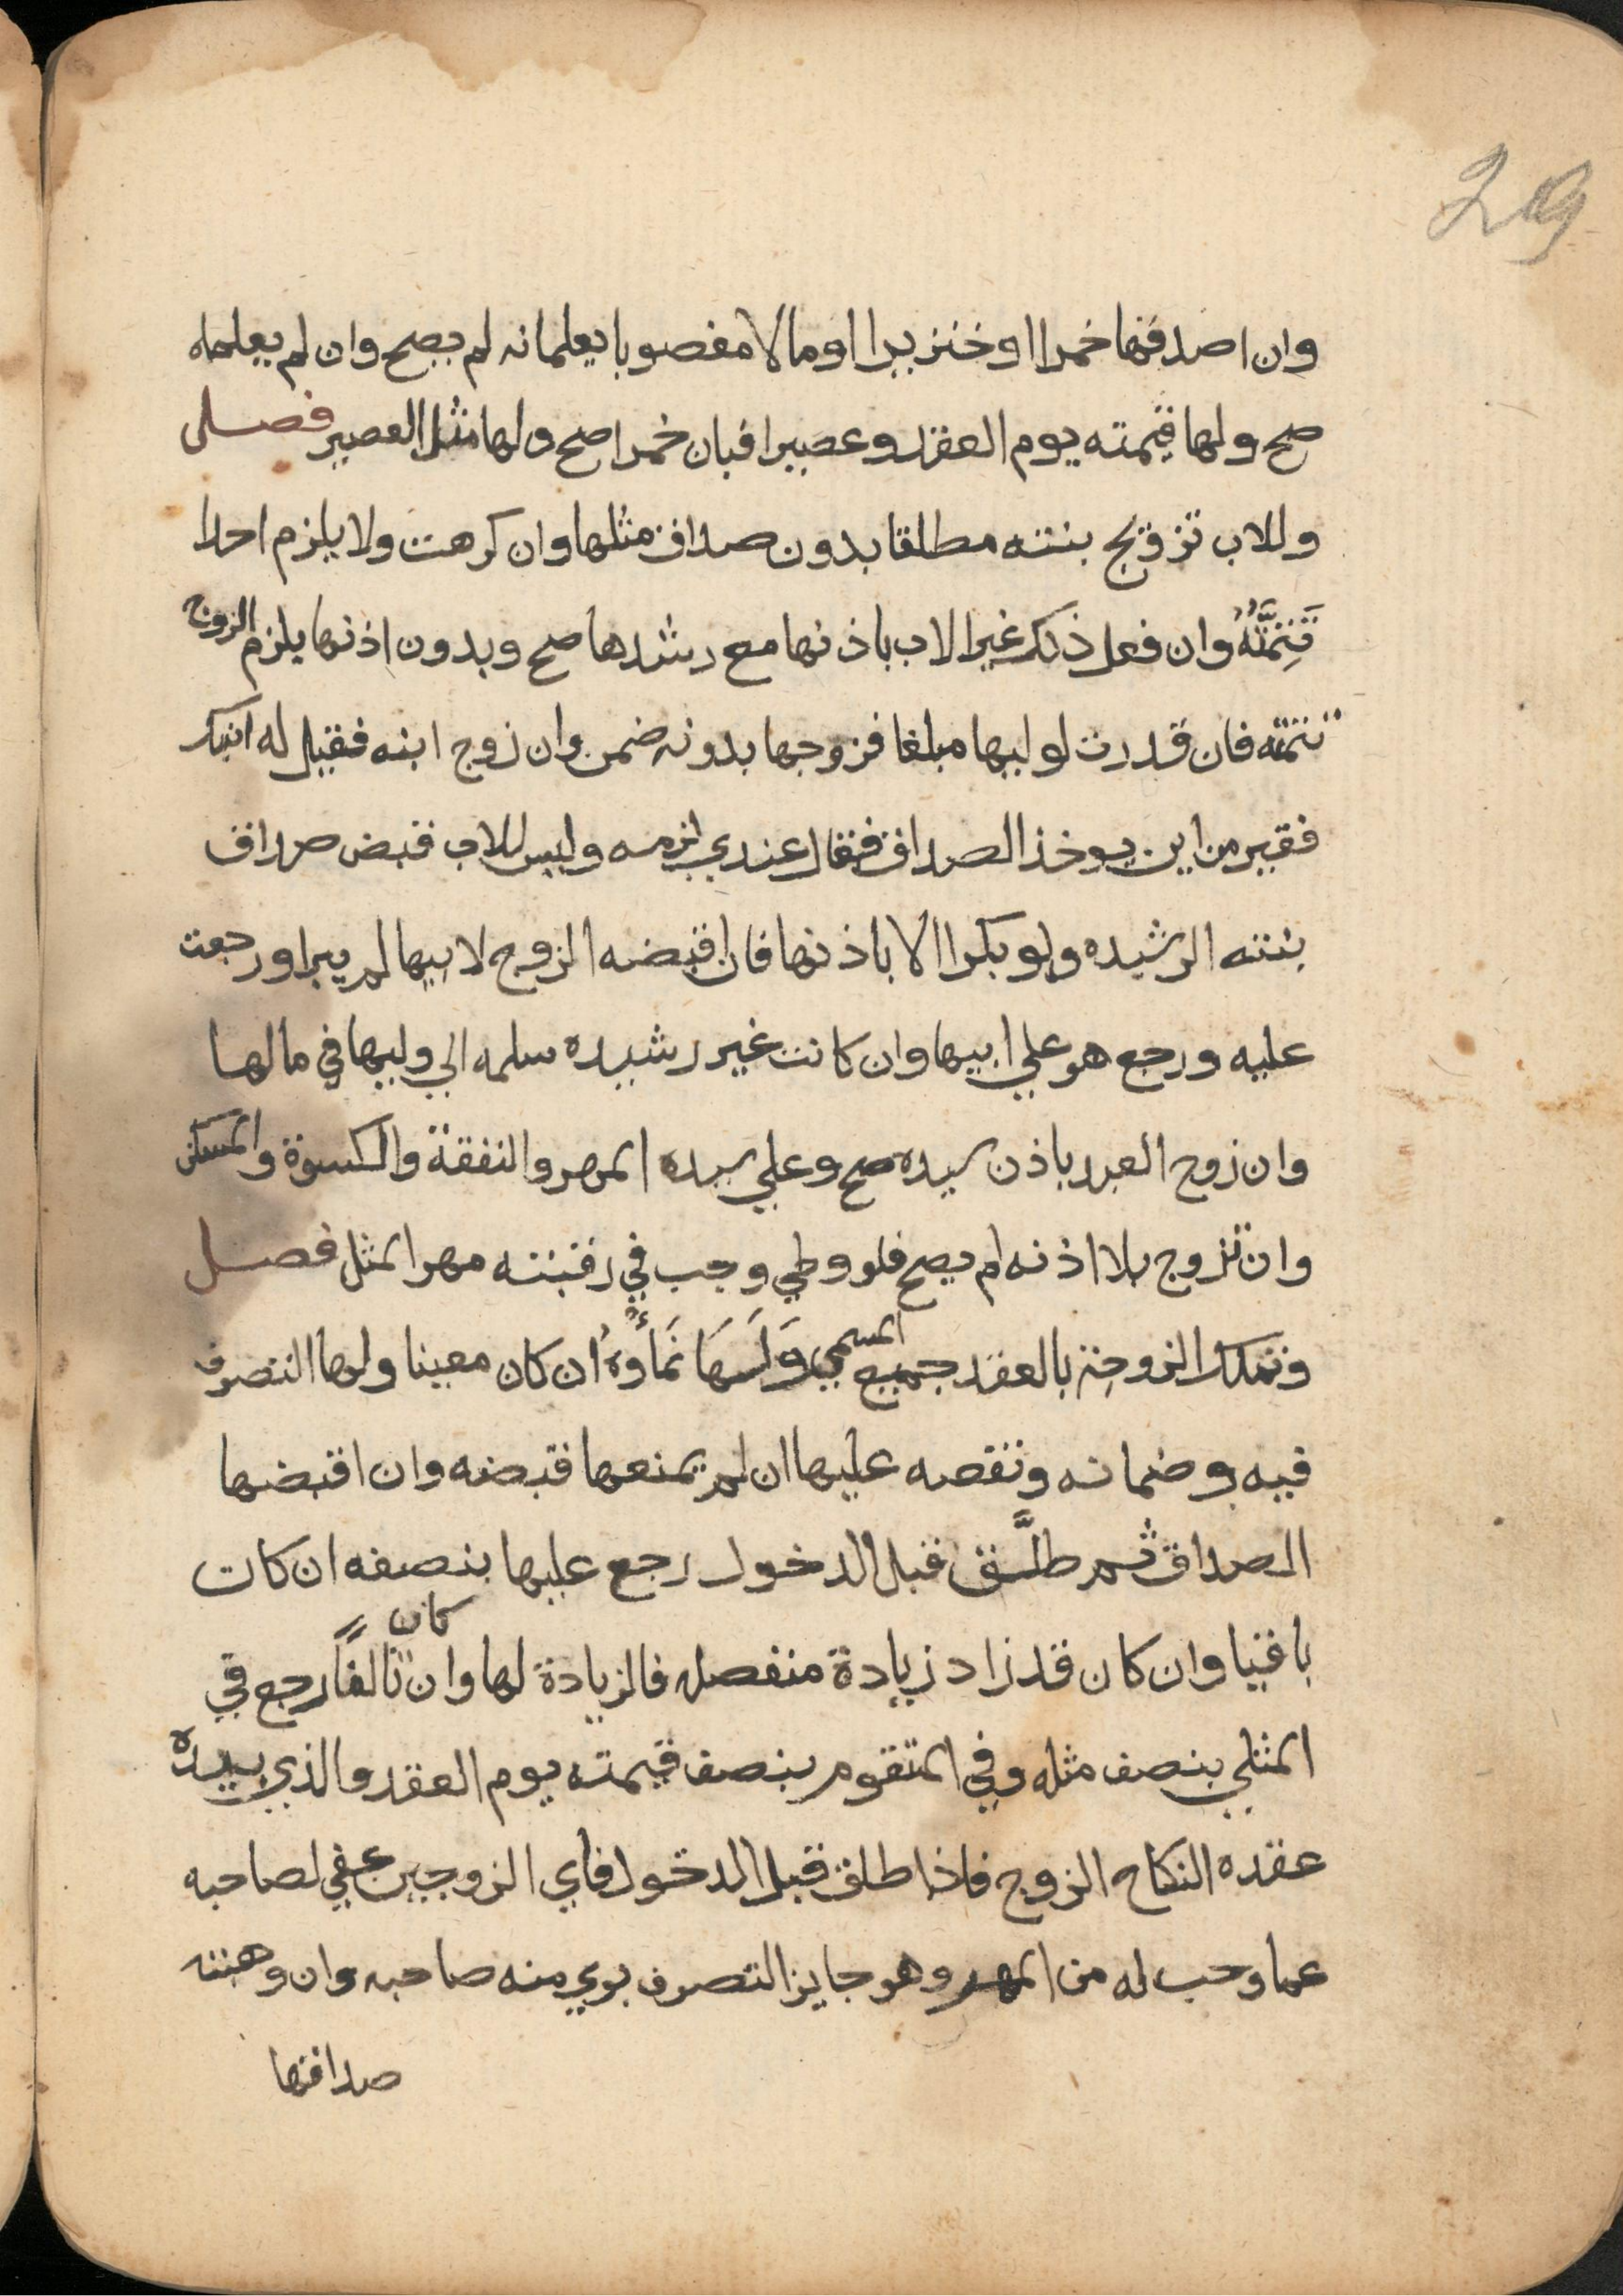 209
وان اصدقها خمرا او خنزيرا او مالا مغصوبا يعلمانه لم يصح وان لم يعلماه
صح ولها قيمته يوم العقد وعصيرا فبان خمرا صح ولها مثل العصير فصل
وللاب تزويج بنته مطلقا بدون صداق مثلها وان كرهت ولا يلزم احدا
تَتِمَّتُهُ وان فعل ذلك غير الاب باذنها مع رشدها صح وبدون اذنها يلزم الزوج
تتمته فان قدرت لوليها مبلغا فزوجها بدونه ضمن وان زوج ابنه فقيل له ابنك
فقير من اين يوخذ الصداق فقال عندي لزمه وليس للاب قبض صداق
بنته الرشيده ولو بكرا الا باذنها فان اقبضه الزوج لابيها لم يبرا ورجعت
عليه ورجع هو علي ابيها وان كانت غير رشيده سلمه الي وليها في مالها
وان زوج العبد باذن سيده صح وعلي سيده المهر والنفقة والكسوة والمسكن
وان تزوج بلا اذنه لم يصح فلو وطي وجب في رقبته مهر المثل فصل
وتملك الزوجة بالعقد جميع المسمي وَلَهَا نَمَاؤهُ ان كان معينا ولها التصرف
فيه وضمانه ونقصه عليها ان لم يمنعها قبضه وان اقبضها
الصداق ثم طلَّق قبل الدخول رجع عليها بنصفه ان كان
باقيا وان كان قد زاد زيادة منفصله فالزيادة لها وان كان تالفًا رجع في
المثلي بنصف مثله وفي المتقوم بنصف قيمته يوم العقد والذي بيده
عقده النكاح الزوج فاذا طلق قبل الدخول فاي الزوجين عفي لصاحبه
عما وجب له من المهر وهو جايز التصرف بري منه صاحبه وان وهبته
صداقها